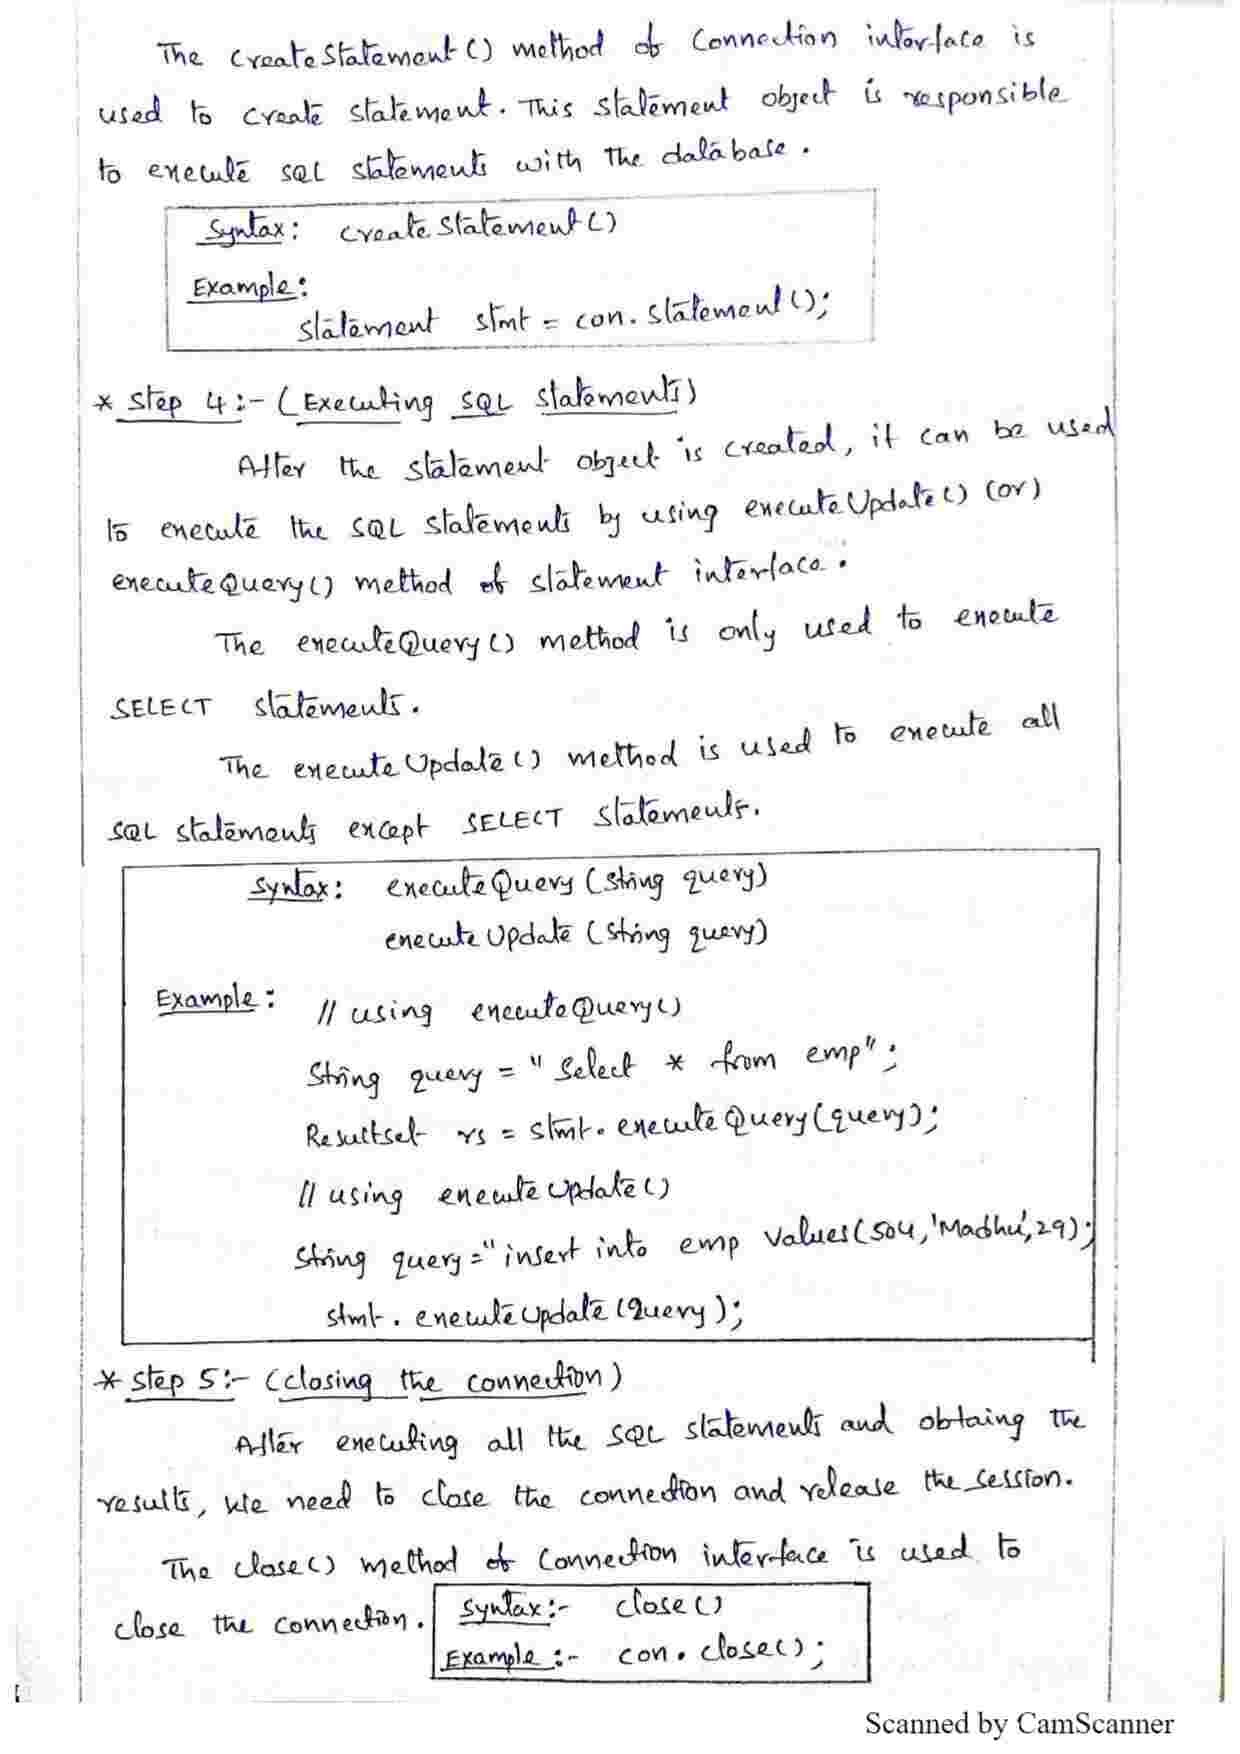 The createStatement() method of Connection interface is
used to create statement. This statement object is responsible
to execute SQL statements with the database.
Syntax: createStatement()
Example:
statement stmt = con.statement();
* Step 4:- (Executing SQL statements)
After the statement object is created, it can be used
to execute the SQL statements by using executeUpdate() (or)
executeQuery() method of statement interface.
The executeQuery() method is only used to execute
SELECT statements.
The executeUpdate() method is used to execute all
SQL statements except SELECT statements.
Syntax: executeQuery(String query)
executeUpdate(String query)
Example: // using executeQuery()
String query = "Select * from emp";
Resultset rs = stmt.executeQuery(query);
// using executeUpdate()
String query="insert into emp values(504,'Madhu',29);
stmt.executeUpdate(query);
* Step 5:- (closing the connection)
After executing all the SQL statements and obtaing the
results, we need to close the connection and release the session.
The close() method of Connection interface is used to
close the connection.
Syntax:- close()
Example:- con.close();
Scanned by CamScanner